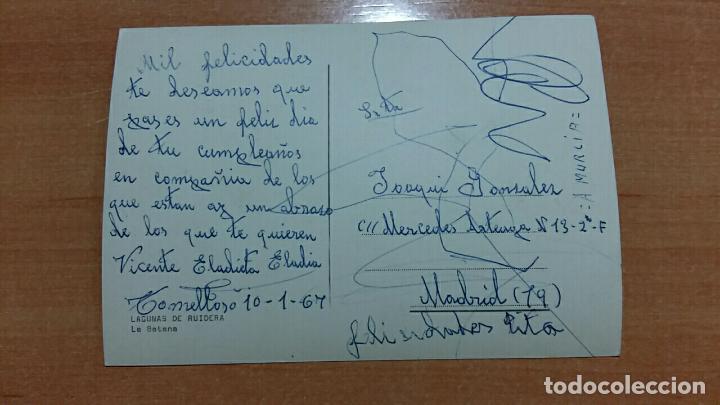 Mil felicidades
te deseamos que
pases un feliz dia
de tu cumpleaños
en compañia de los
que estan az un abraso
de los que te quieren
Vicente Eladieta Eladia
Tomelloso 10-1-67
LAGUNAS DE RUIDERA
La Batana
Srta
Joaqui Gonsalez
C// Mercedes Arteaga Nº 13-2º-F
Madrid (19)
felisidades Rita
A MURCIA=
todocoleccion.net